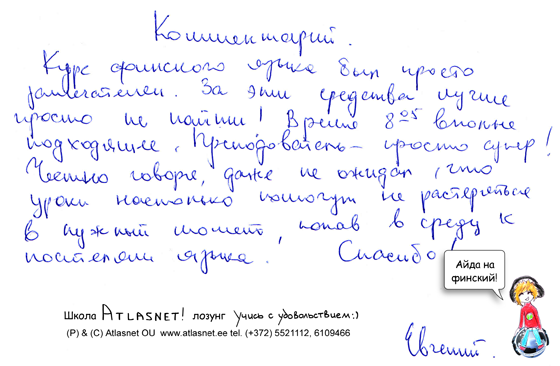 Комментарий.
Курс финского языка был просто
замечателен. За эти средства лучше
просто не найти! Время 8 05 вполне
подходящее. Преподователь - просто супер!
Честно говоря, даже не ожидал, что
уроки настолько помогут не растеряться
в нужный момент, попав в среду к
носителям языка. Спасибо!
Айда на
финский!
Школа ATLASNET! лозунг Учись с удовольствием:)
(P) & (C) Atlasnet OU www.atlasnet.ee tel. (+372) 5521112, 6109466
Евгений.